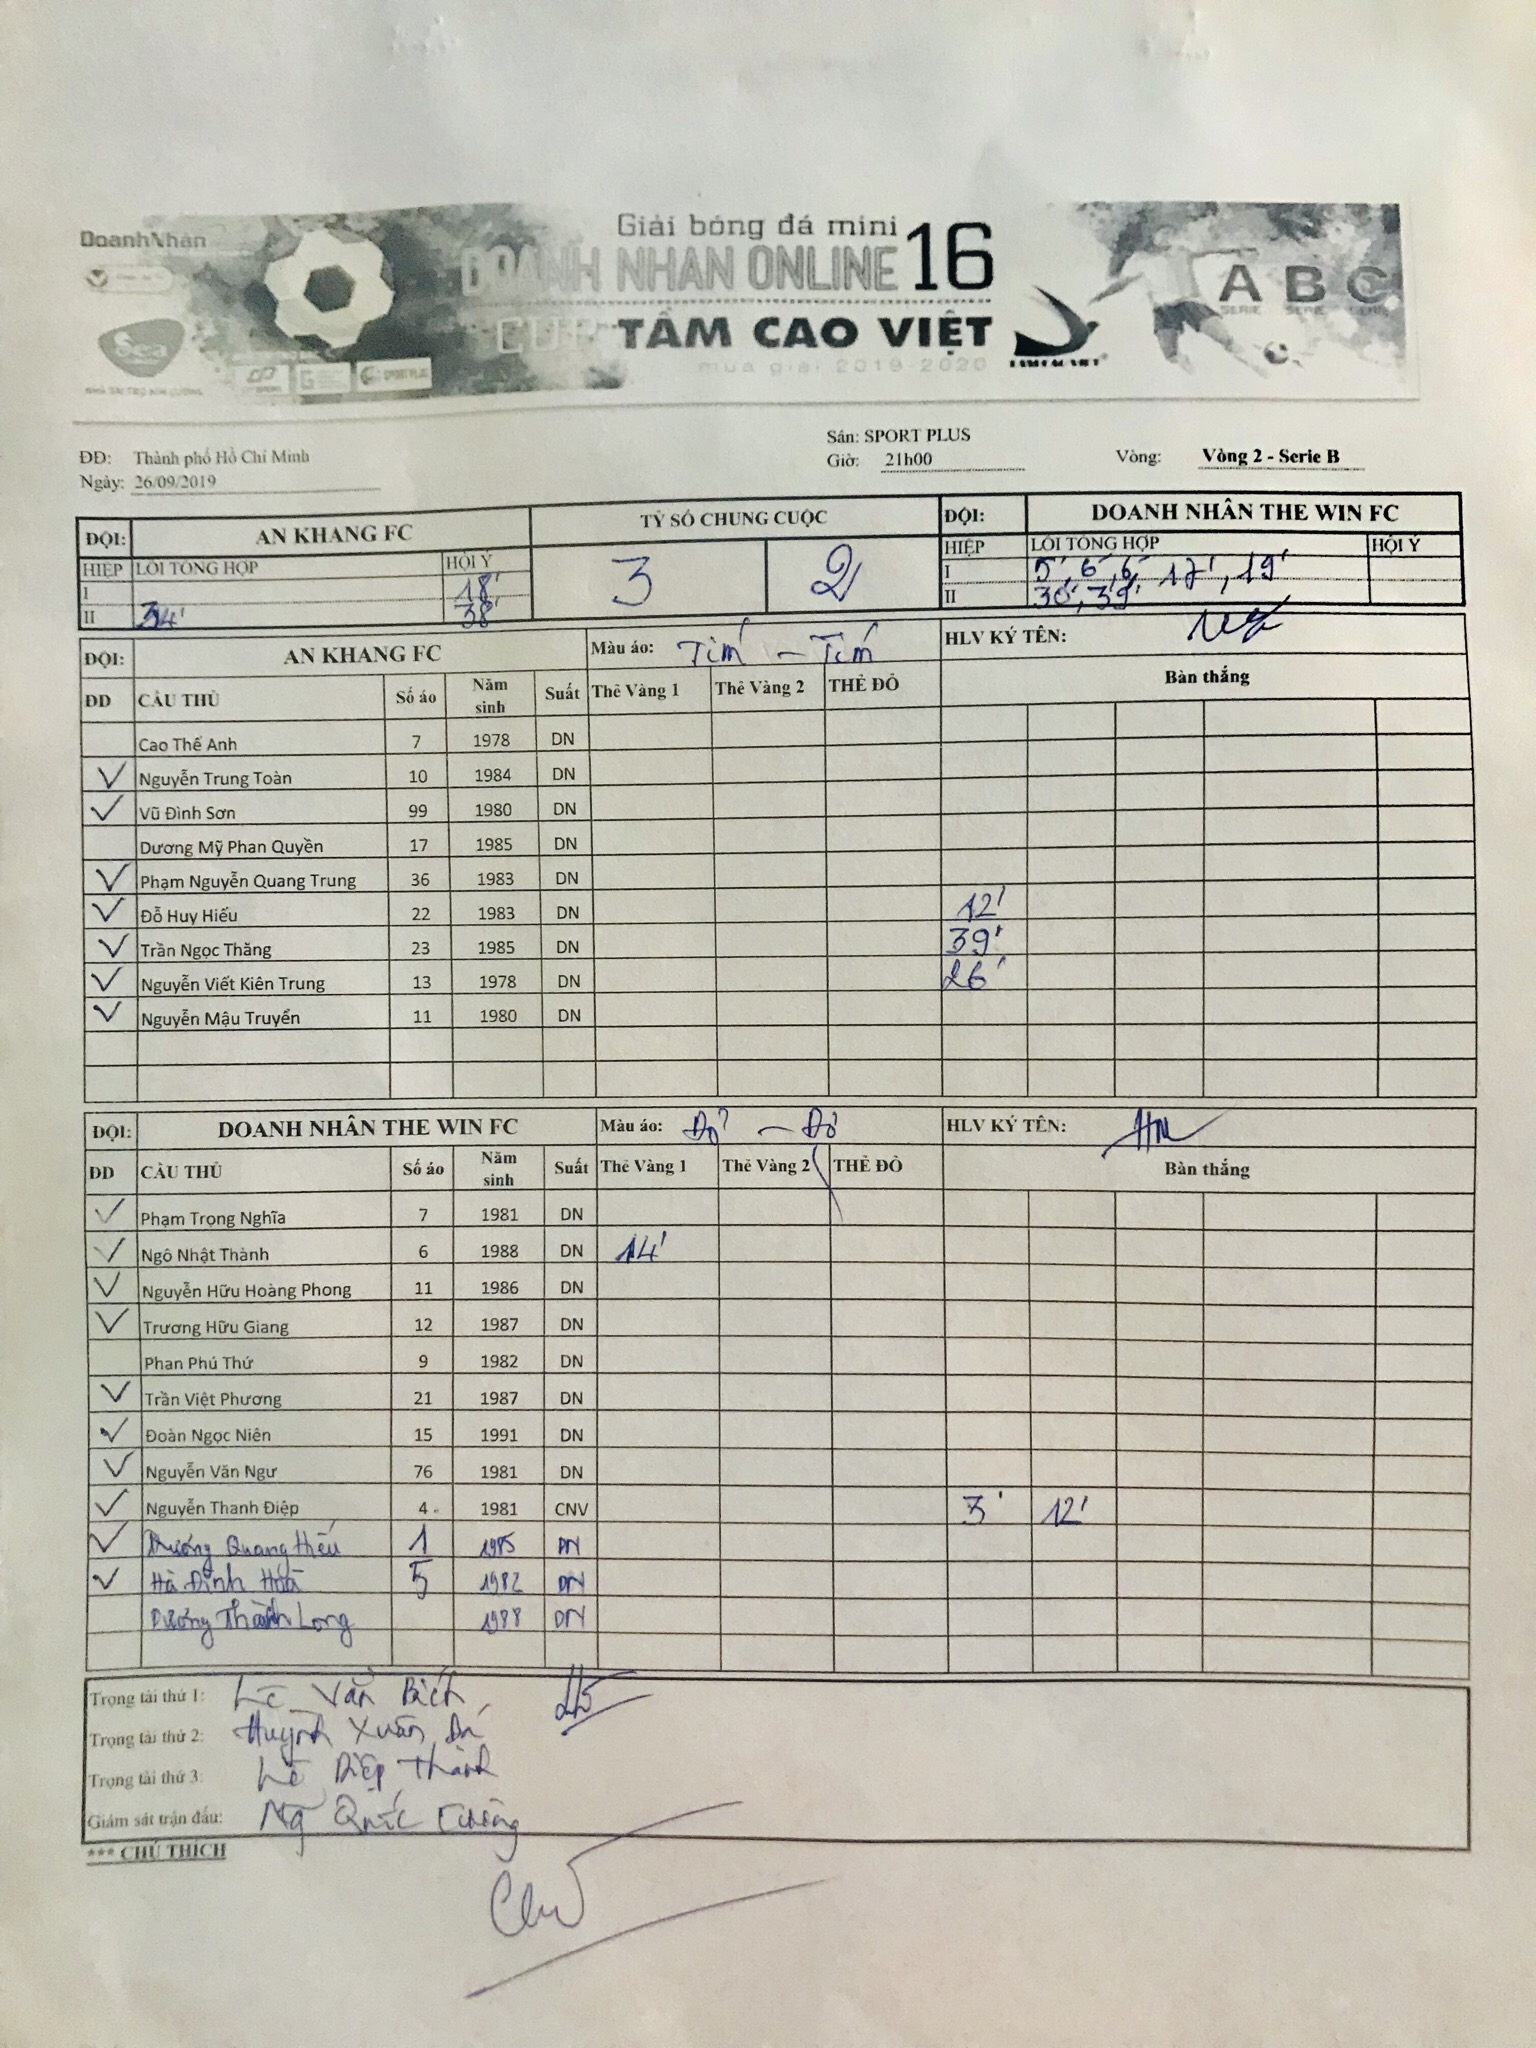 DoanhNhân
Giải bóng đá mini
DOANH NHAN ONLINE 16
CUP TẦM CAO VIỆT
mùa giải 2019-2020
Sea
NHÀ TÀI TRỢ KIM CƯƠNG
SPORT PLUS
TAMCAOVIET
A B C
SERIE SERIE SERIE
ĐĐ: Thành phố Hồ Chí Minh
Sân: SPORT PLUS
Ngày: 26/09/2019
Giờ: 21h00
Vòng: Vòng 2 - Serie B
ĐỘI: AN KHANG FC TỶ SỐ CHUNG CUỘC ĐỘI: DOANH NHÂN THE WIN FC
HIỆP LỖI TỔNG HỢP HỘI Ý 3 2 HIỆP LỖI TỔNG HỢP HỘI Ý
I 18' I 5', 6', 6', 17', 19'
II 34' 38' II 30', 39'
ĐỘI: AN KHANG FC Màu áo: Tím - Tím HLV KÝ TÊN:
ĐD CẦU THỦ Số áo Năm sinh Suất Thẻ Vàng 1 Thẻ Vàng 2 THẺ ĐỎ Bàn thắng
Cao Thế Anh 7 1978 DN
✓ Nguyễn Trung Toàn 10 1984 DN
✓ Vũ Đình Sơn 99 1980 DN
Dương Mỹ Phan Quyền 17 1985 DN
✓ Phạm Nguyễn Quang Trung 36 1983 DN
✓ Đỗ Huy Hiếu 22 1983 DN 12'
✓ Trần Ngọc Thăng 23 1985 DN 39'
✓ Nguyễn Viết Kiên Trung 13 1978 DN 26'
✓ Nguyễn Mậu Truyển 11 1980 DN
ĐỘI: DOANH NHÂN THE WIN FC Màu áo: Đỏ - Đỏ HLV KÝ TÊN:
ĐD CẦU THỦ Số áo Năm sinh Suất Thẻ Vàng 1 Thẻ Vàng 2 THẺ ĐỎ Bàn thắng
✓ Phạm Trọng Nghĩa 7 1981 DN
✓ Ngô Nhật Thành 6 1988 DN 14'
✓ Nguyễn Hữu Hoàng Phong 11 1986 DN
✓ Trương Hữu Giang 12 1987 DN
Phan Phú Thứ 9 1982 DN
✓ Trần Việt Phương 21 1987 DN
✓ Đoàn Ngọc Niên 15 1991 DN
✓ Nguyễn Văn Ngư 76 1981 DN
✓ Nguyễn Thanh Điệp 4 1981 CNV 3' 12'
✓ Dương Quang Hiếu 1 1985 DN
✓ Hà Đình Hoà 5 1982 DN
Dương Thành Long 1988 DN
Trọng tài thứ 1: Lê Văn Bích
Trọng tài thứ 2: Huỳnh Xuân
Trọng tài thứ 3: Lê Diệp Thành
Giám sát trận đấu: Quốc
*** CHÚ THÍCH